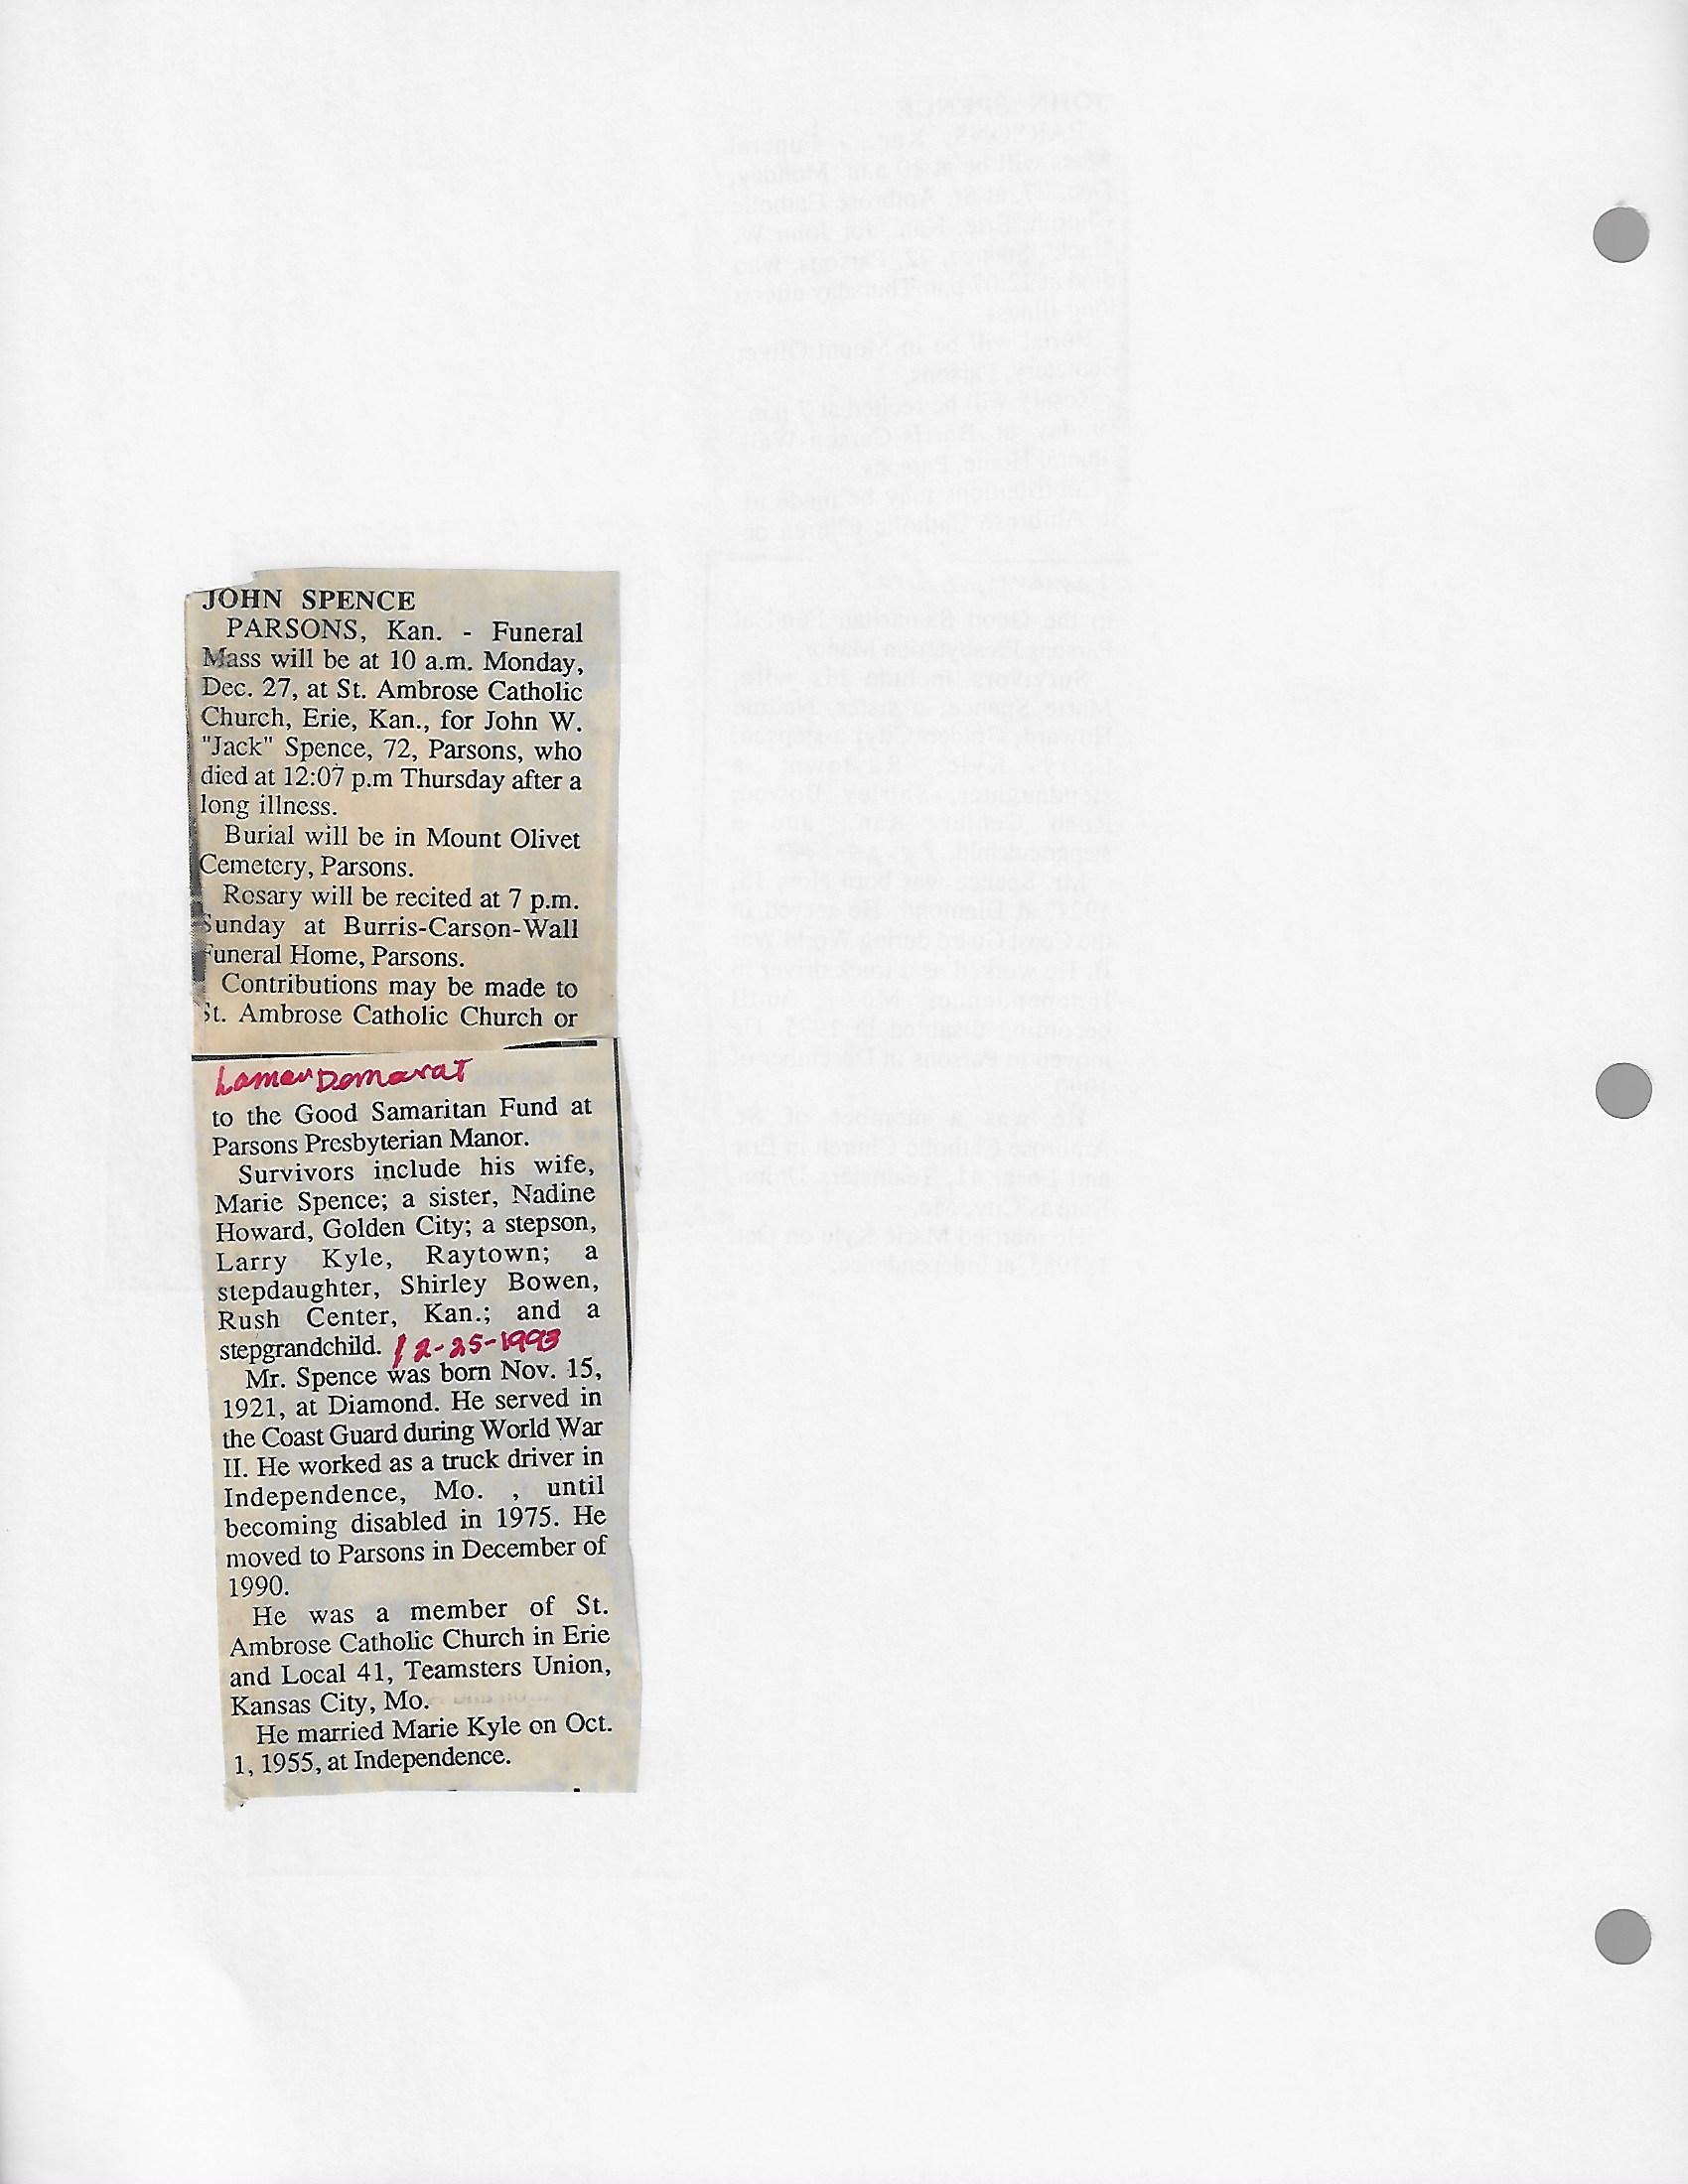 JOHN SPENCE
PARSONS, Kan. - Funeral
Mass will be at 10 a.m. Monday,
Dec. 27, at St. Ambrose Catholic
Church, Erie, Kan., for John W.
"Jack" Spence, 72, Parsons, who
died at 12:07 p.m Thursday after a
long illness.
Burial will be in Mount Olivet
Cemetery, Parsons.
Rosary will be recited at 7 p.m.
Sunday at Burris-Carson-Wall
Funeral Home, Parsons.
Contributions may be made to
St. Ambrose Catholic Church or
Lamar Demarat
to the Good Samaritan Fund at
Parsons Presbyterian Manor.
Survivors include his wife,
Marie Spence; a sister, Nadine
Howard, Golden City; a stepson,
Larry Kyle, Raytown; a
stepdaughter, Shirley Bowen,
Rush Center, Kan.; and a
stepgrandchild. 12-25-1993
Mr. Spence was born Nov. 15,
1921, at Diamond. He served in
the Coast Guard during World War
II. He worked as a truck driver in
Independence, Mo. , until
becoming disabled in 1975. He
moved to Parsons in December of
1990.
He was a member of St.
Ambrose Catholic Church in Erie
and Local 41, Teamsters Union,
Kansas City, Mo.
He married Marie Kyle on Oct.
1, 1955, at Independence.